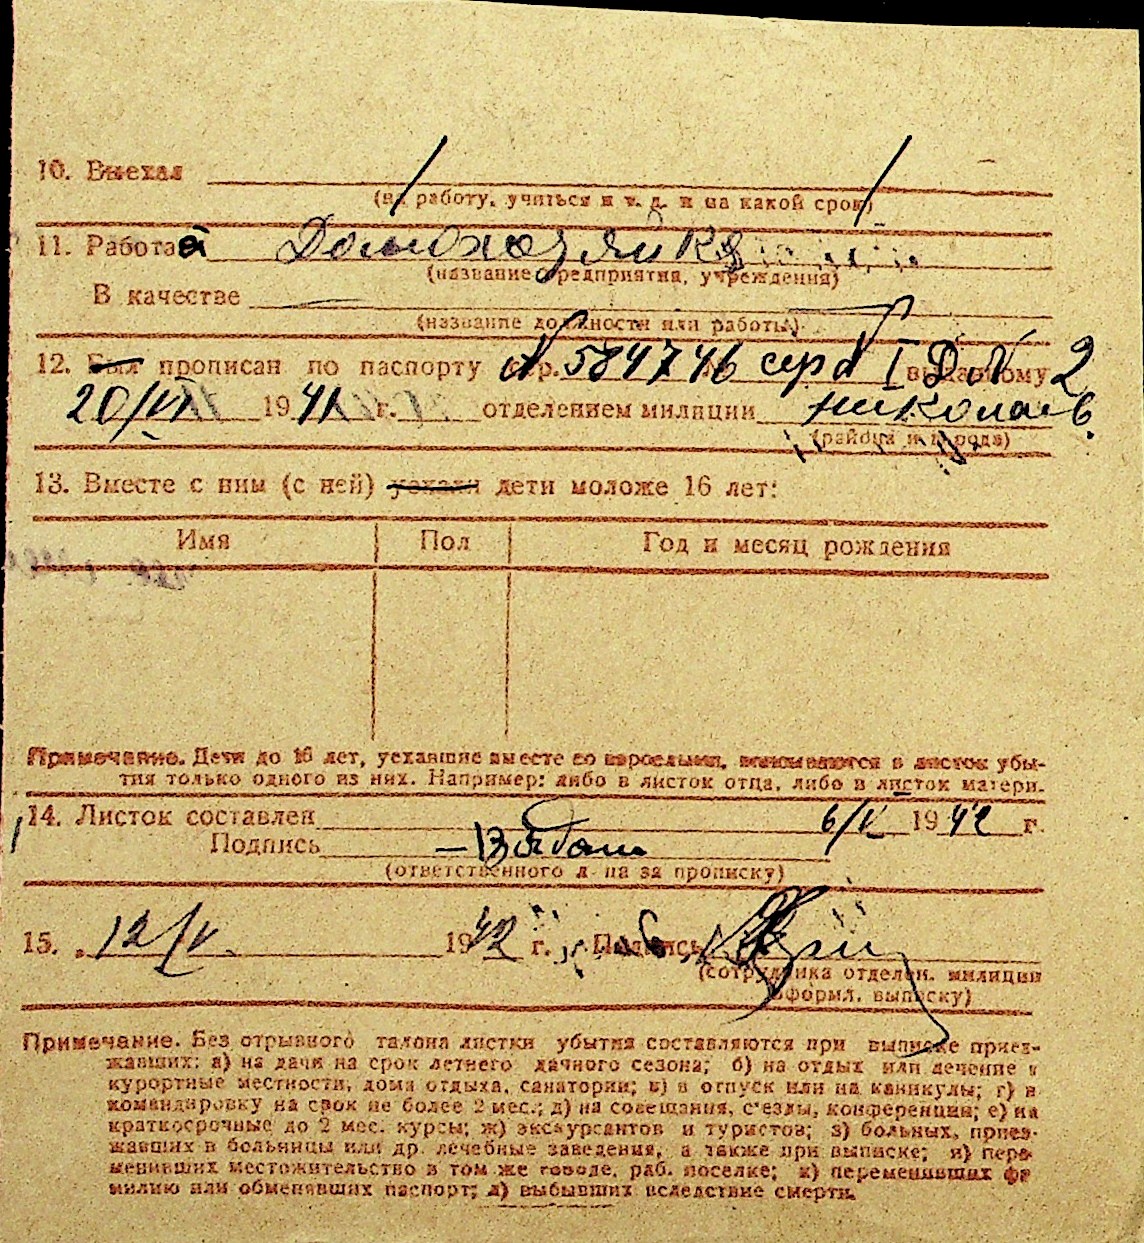 10. Выехал
(на работу, учиться и т. д. и на какой срок)
11. Работала Домохозяйка
(название предприятия, учреждения)
В качестве
(название должности или работы)
12. Был прописан по паспорту 584746 выданному
20/VI 1941 г. отделением милиции Николаев.
(района и города)
13. Вместе с ним (с ней) уехали дети моложе 16 лет:
Имя Пол Год и месяц рождения
Примечание. Дети до 16 лет, уехавшие вместе со взрослыми, вписываются в листок убы-
тия только одного из них. Например: либо в листок отца, либо в листок матери.
14. Листок составлен 6/V 1942 г.
Подпись
(ответственного л-ца за прописку)
15. „12/V. 1942 г. Подпись
(сотрудника отделен. милиции
оформл. выписку)
Примечание. Без отрывного талона листки убытия составляются при выписке приез-
жавших: а) на дачи на срок летнего дачного сезона; б) на отдых или лечение в
курортные местности, дома отдыха, санатории; в) в отпуск или на каникулы; г) в
командировку на срок не более 2 мес.; д) на совещания, с'езды, конференции; е) на
краткосрочные до 2 мес. курсы; ж) экскурсантов и туристов; з) больных, приез-
жавших в больницы или др. лечебные заведения, а также при выписке; и) пере-
менивших местожительство в том же городе, раб. поселке; к) переменивших фа-
милию или обменявших паспорт; л) выбывших вследствие смерти.